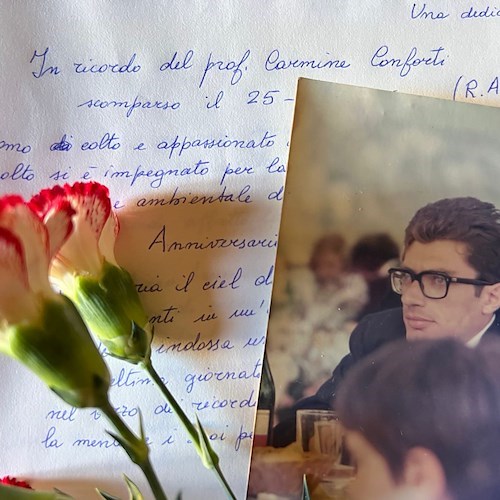 Una dedic
In ricordo del prof. Carmine Conforti
scomparso il 25- (R.A
omo di colto e appassionato
olto si è impegnato per la
e ambientale d
Anniversari
ria il ciel d
nti in un'
indossa un
ltima giornat
nel di ricord
la ment e i suoi pe